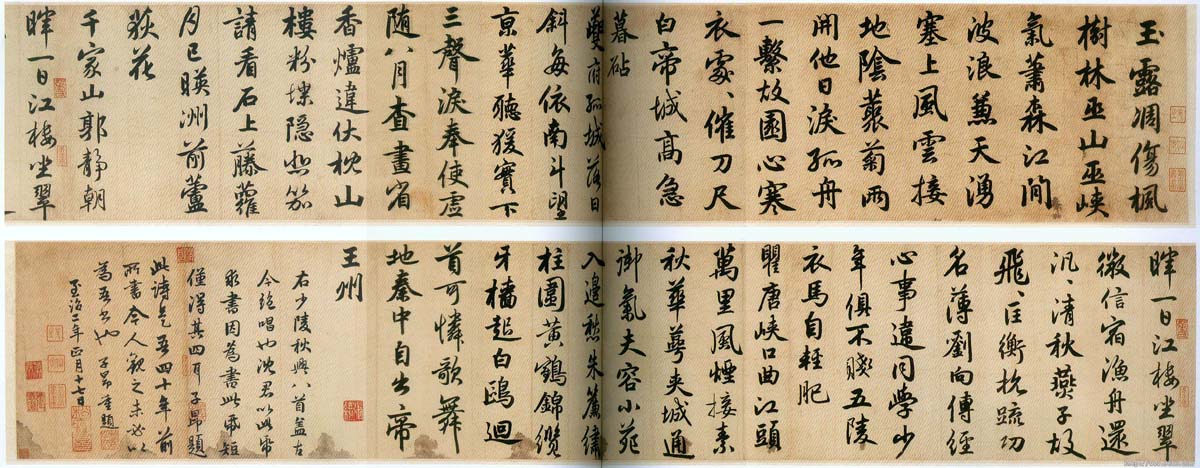 玉露凋傷楓
樹林巫山巫峽
氣蕭森江間
波浪蒹天湧
塞上風雲接
地陰藂菊兩
開他日淚孤舟
一繫故園心寒
衣處々催刀尺
白帝城高急
暮砧
夔府孤城落日
斜每依南斗望
京華聽猨實下
三聲淚奉使虛
随八月查畫省
香爐違伏枕山
樓粉堞隱悲笳
請看石上藤蘿
月已暎洲前蘆
荻花
千家山郭靜朝
暉一日江樓坐翠
暉一日江樓坐翠
微信宿漁舟還
汎々清秋燕子故
飛々匡衡抗疏功
名薄劉向傳經
心事違同學少
年俱不賤五陵
衣馬自輕肥
瞿唐峽口曲江頭
萬里風煙接素
秋華萼夾城通
御氣夫容小苑
入邊愁朱簾繡
柱圍黃鶴錦纜
牙檣起白鷗迴
首可憐歌舞
地秦中自古帝
王州
右少陵秋興八首蓋古
今絕唱也沈君以此帋
求書因為書此帋短
僅得其四耳 子昂題
此詩是吾四十年前
所書今人觀之未必以
為吾書也 子昂重題
至治二年正月十七日